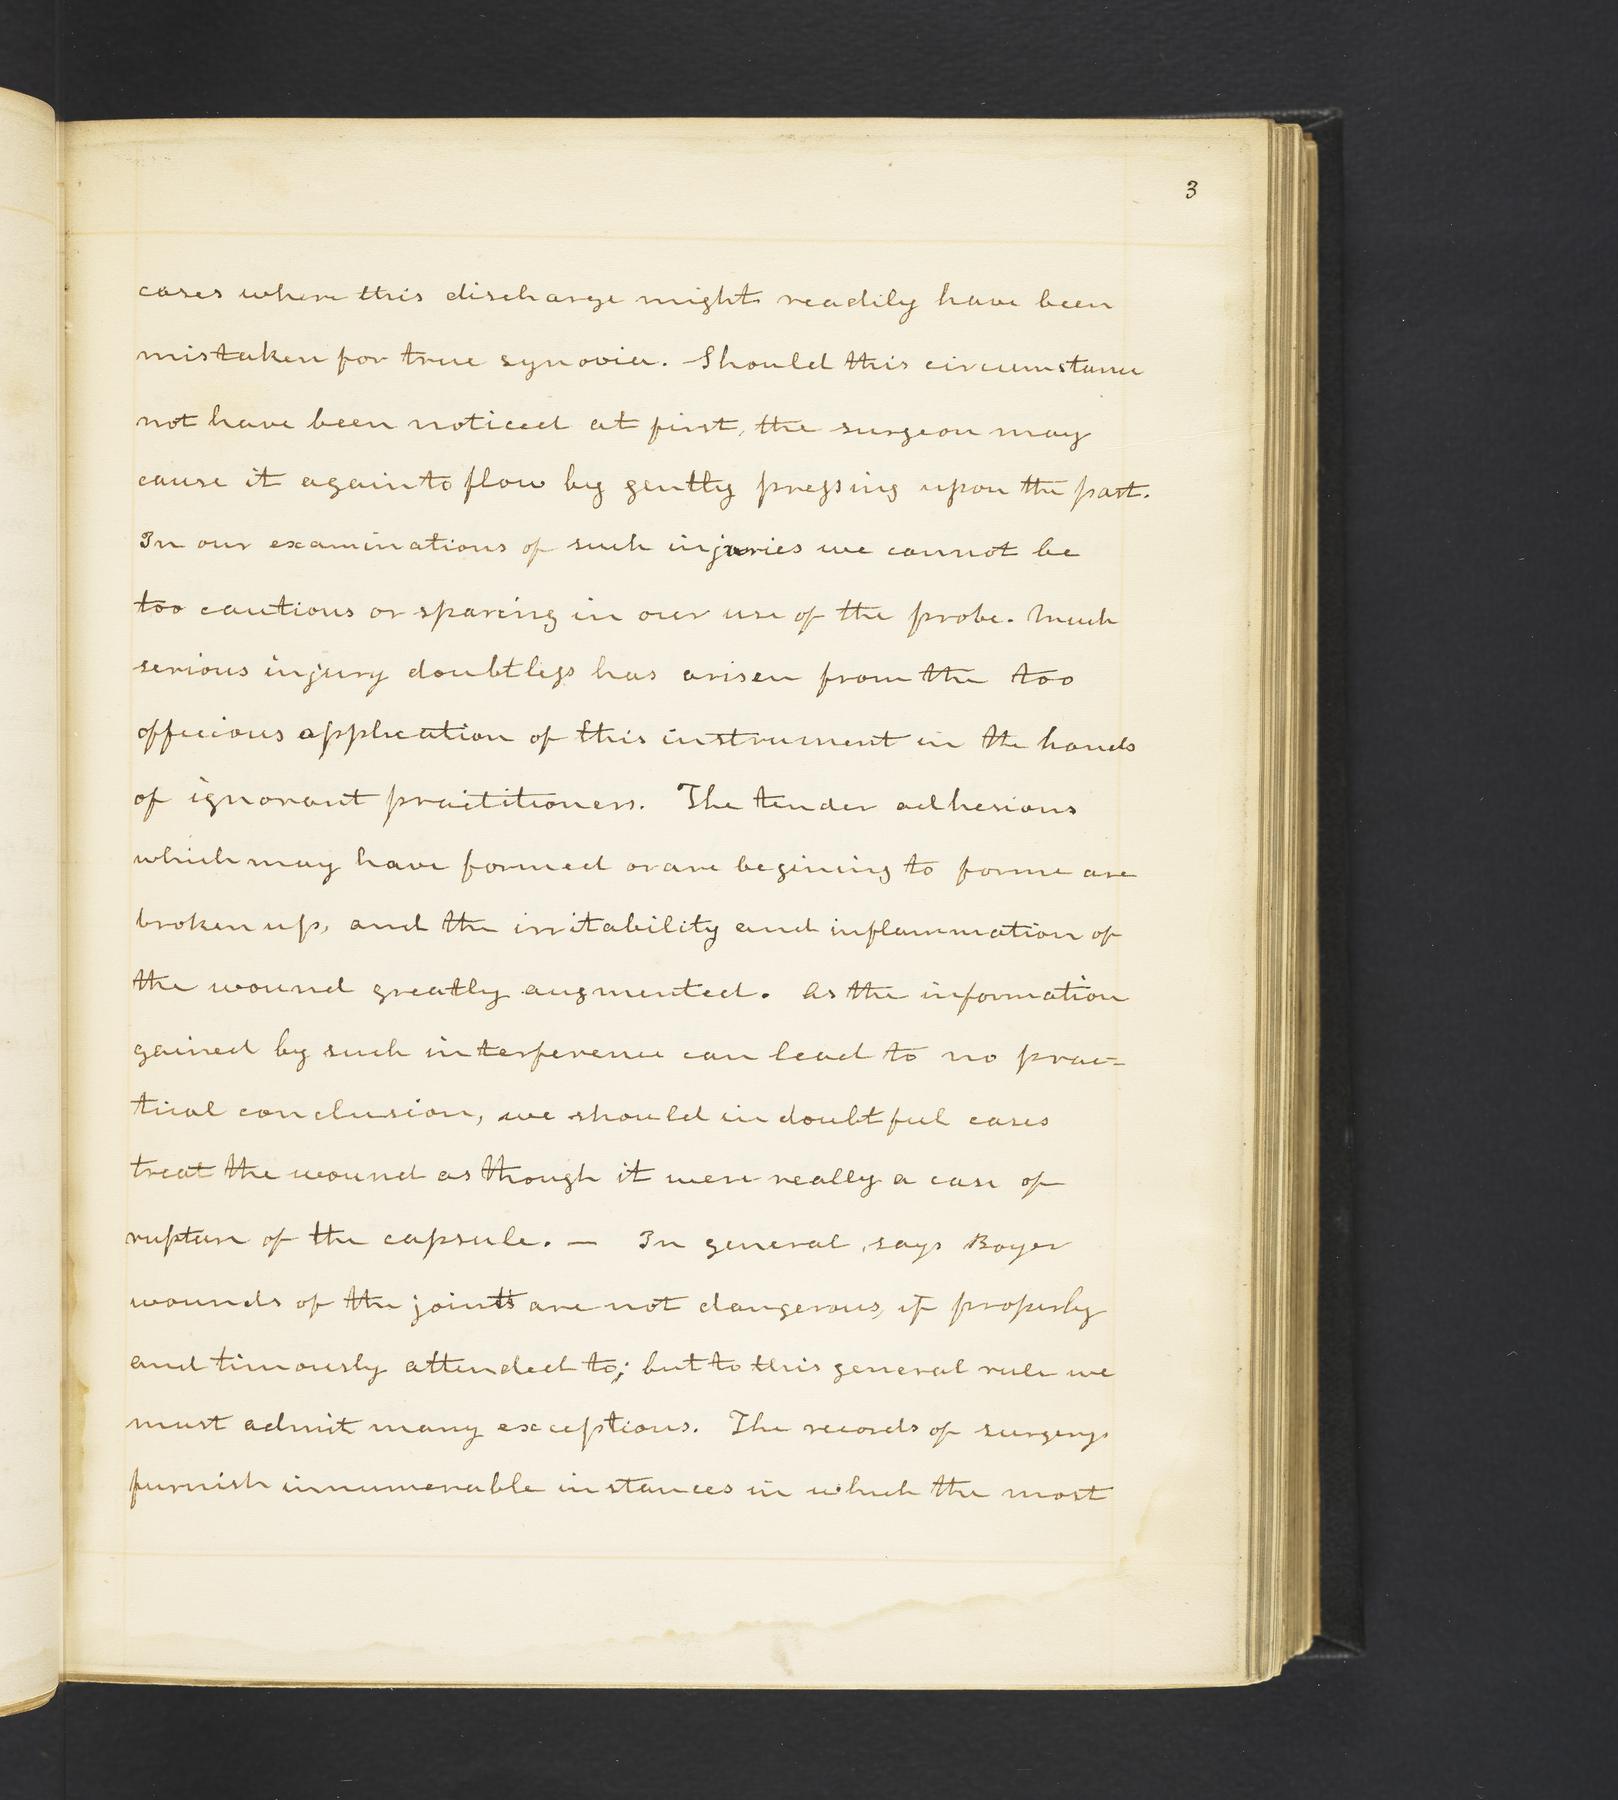 3
cases where this discharge might readily have been
mistaken for true synovia. Should this circumstance
not have been noticed at first, the surgeon may
cause it again to flow by gently pressing upon the part.
In our examinations of such injuries we cannot be
too cautious or sparing in our use of the probe. Much
serious injury doubtless has arisen from the too
officious application of this instrument in the hands
of ignorant practitioners. The tender adhesions
which may have formed or are begining to forme are
broken up, and the irritability and inflammation of
the wound greatly augmented. As the information
gained by such interference can lead to no prac-
tical conclusion, we should in doubtful cases
treat the wound as though it were really a case of
rupture of the capsule. — In general, says Boyer
wounds of the joints are not dangerous, if properly
and timously attended to; but to this general rule we
must admit many exceptions. The records of surgery
furnish innumerable instances in which the most